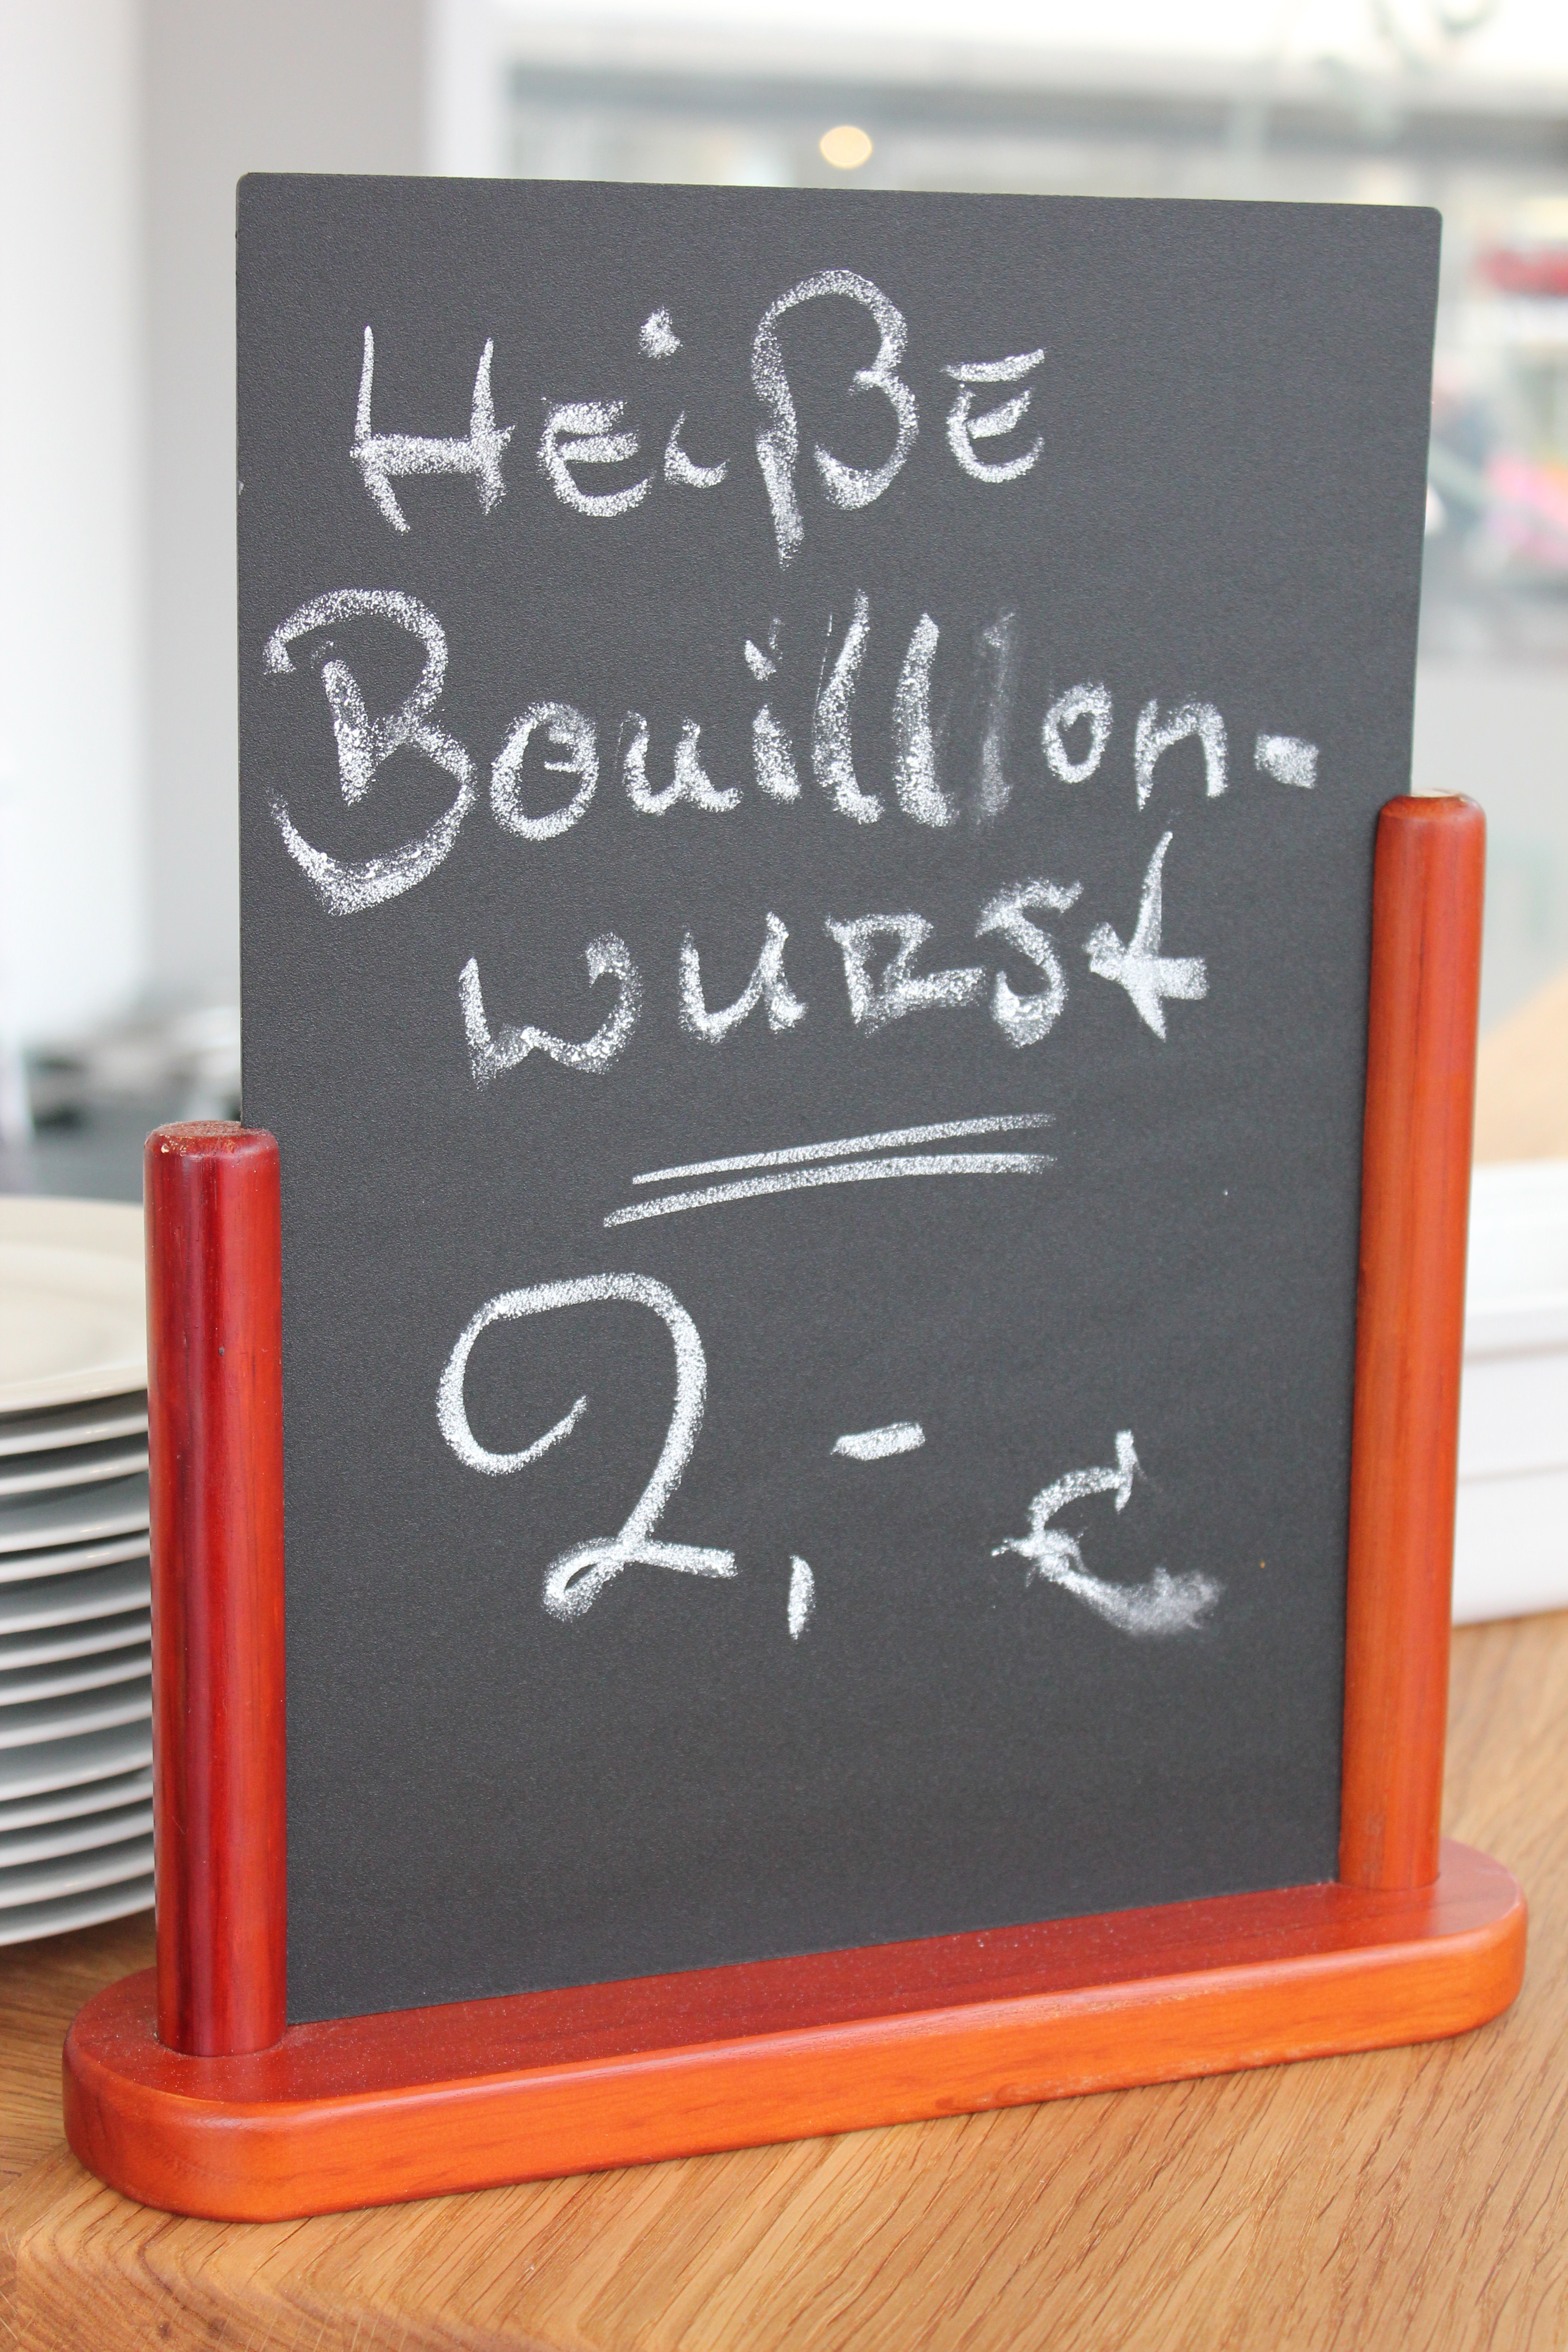 Heiße
Bouillon-
wurst
2,- €